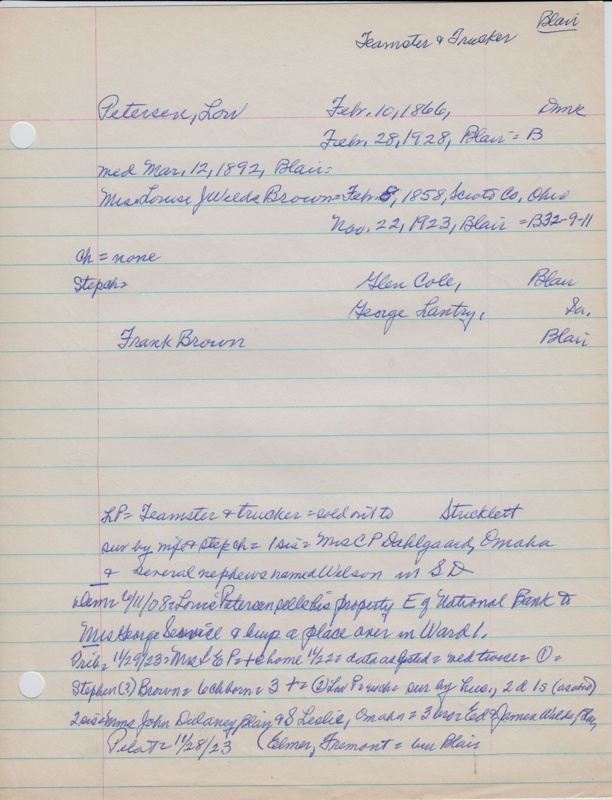 Blair
Teamster & Trucker
Petersen, Lou Feb. 10, 1866, Dmk
Febr. 28, 1928, Blair = B
med Mar. 12, 1892, Blair =
Mrs Louise J Welds Brown = Feb 8, 1858, Scioto Co, Ohio
Nov. 22, 1923, Blair = B32-9-11
Ch = none
Stepch =
Glen Cole, Blair
George Lantry, Ia.
Frank Brown Blair
LP = Teamster & trucker = sold out to Stricklett
sur by wife & stepch = 1 sis = Mrs C P Dahlgaard, Omaha
& several nephews named Wilson in S D
Dem = 6/11/08 = Petersen sells his property E of National Bank to
Mrs George & buys a place over in Ward 1.
Trib = 11/29/23 = Mrs L E P = + @ home 11/22 = data as quoted = med twice = ① =
Stephen (?) Brown = 6 ch born = 3 + = ② Lou P = = sur by hus, 2 d 1 s (as noted)
2 sis = Mmes John Dulaney, Blair & S Leslie, Omaha = 3 bro = Ed & James Welds, Blair,
Pilot = 11/28/23 (Elmer, Fremont = bur Blair